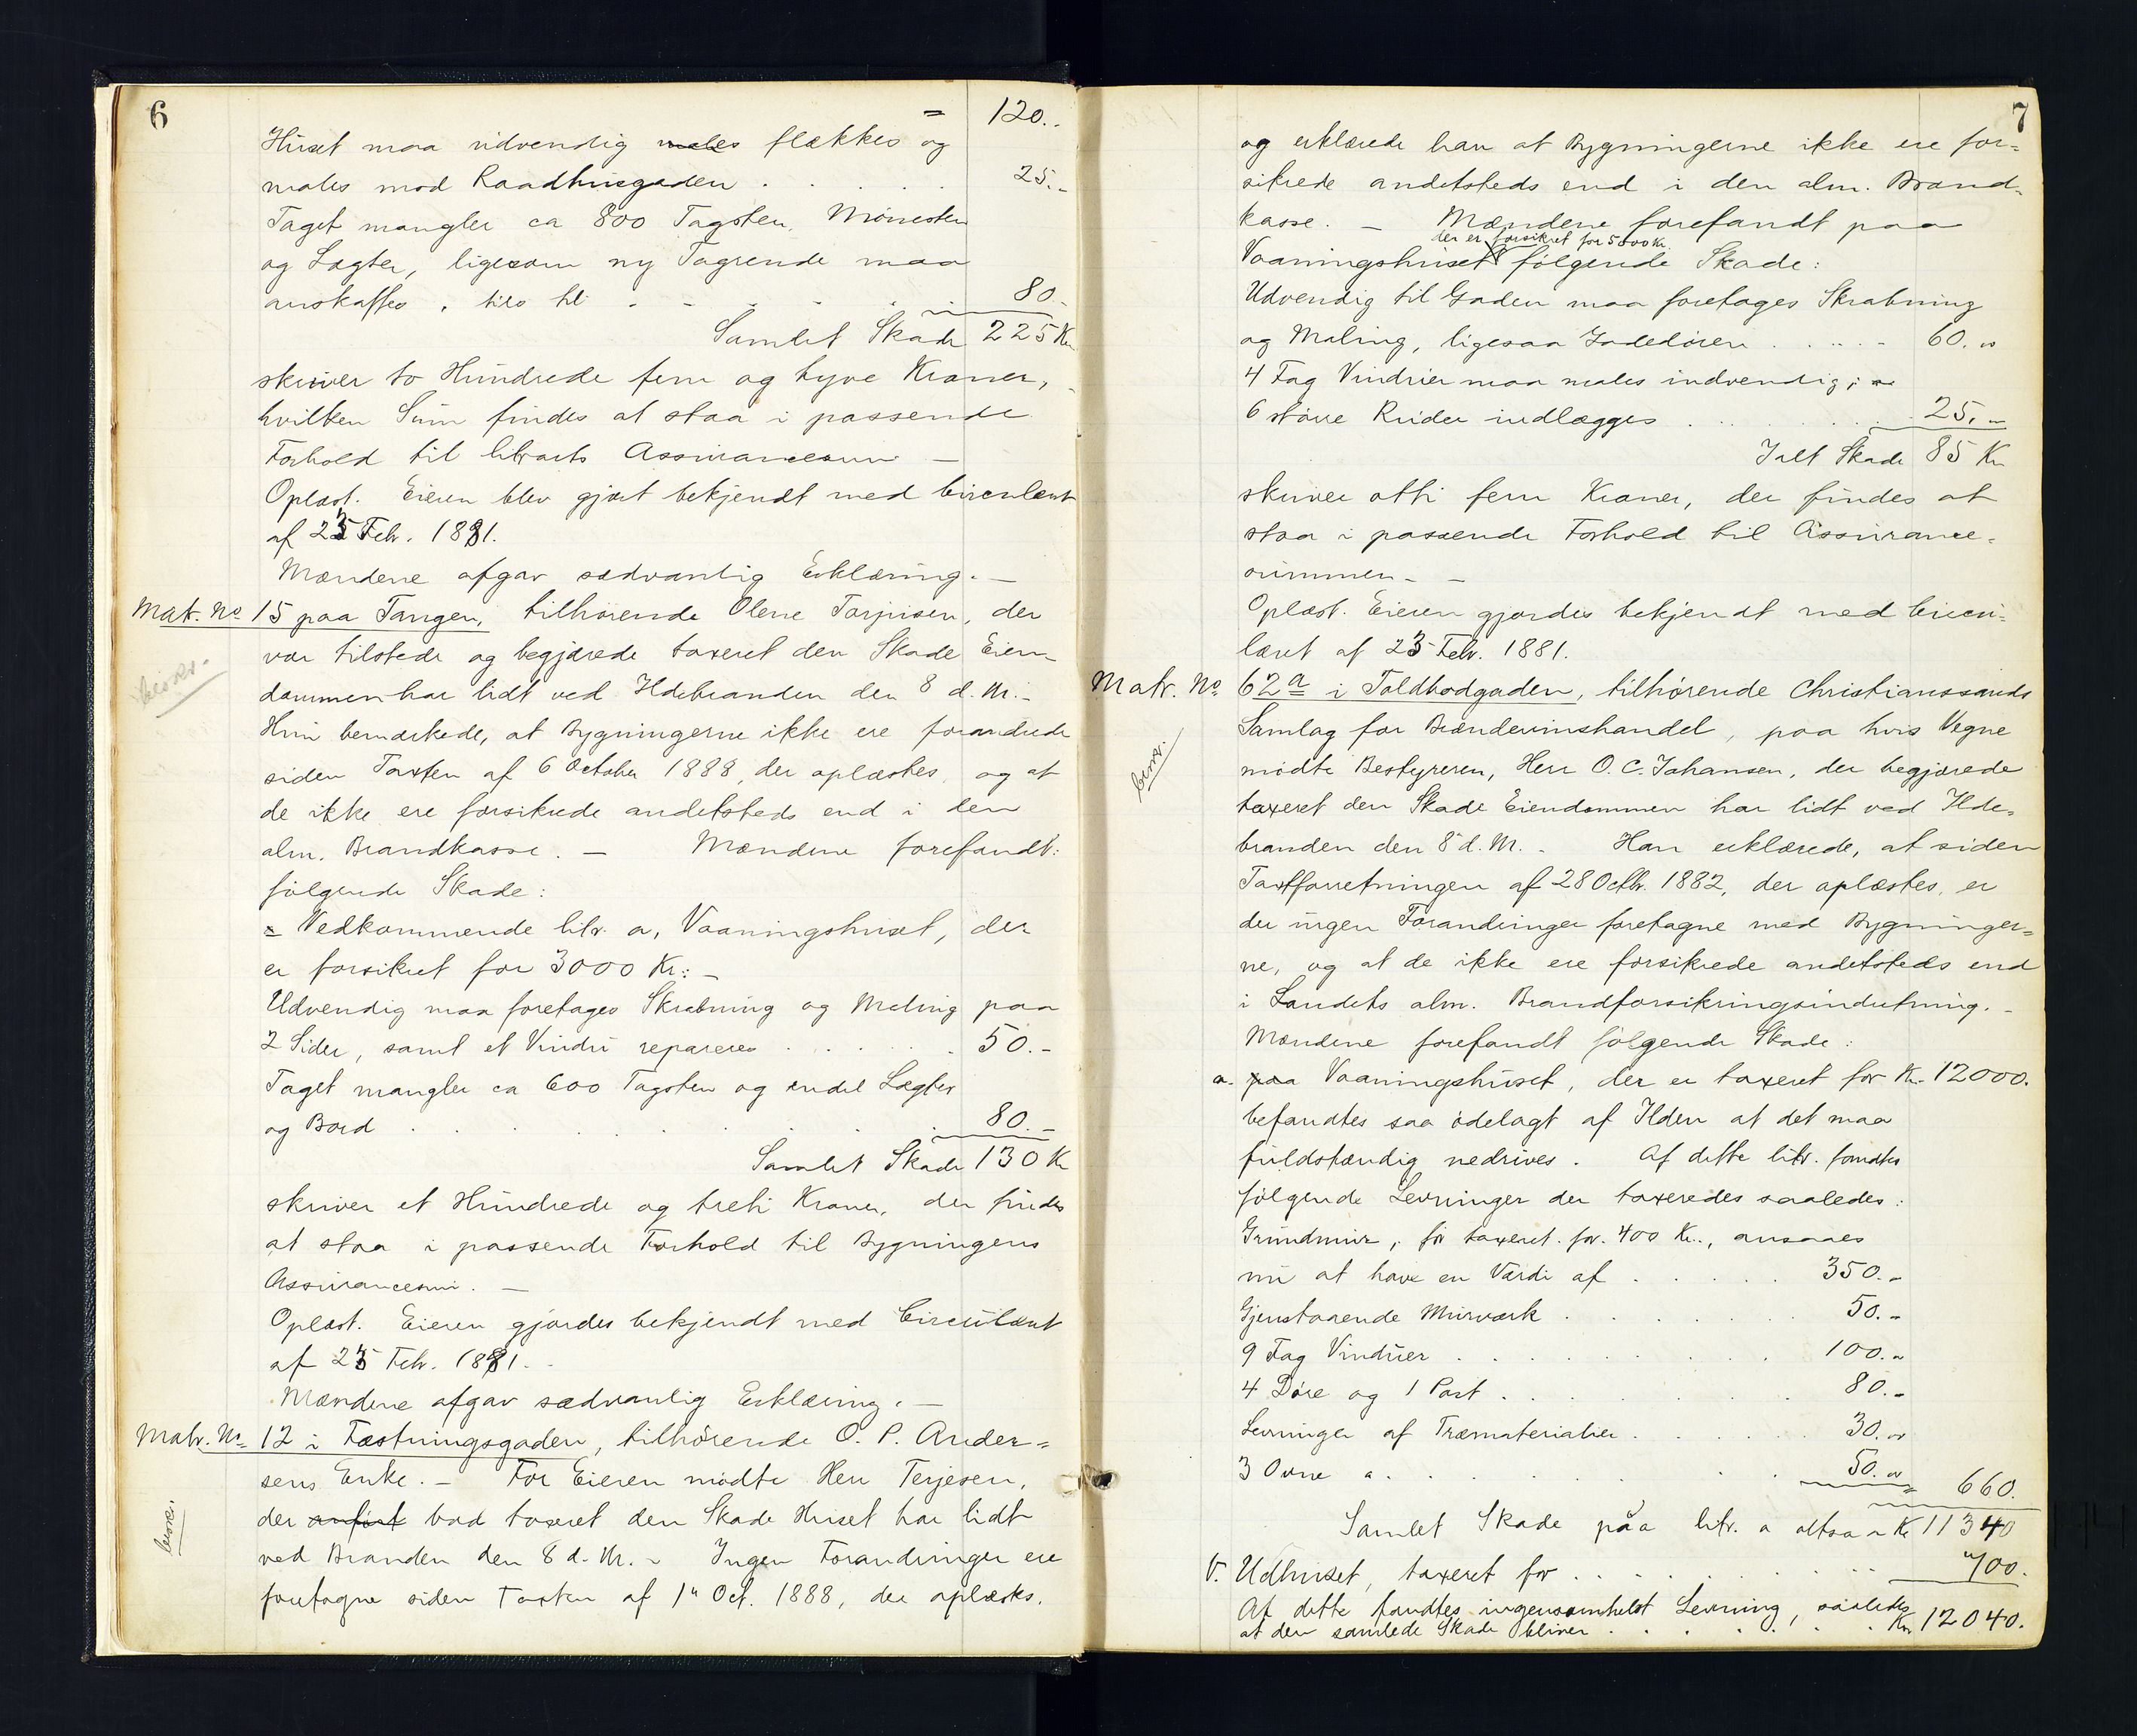 6
= 120.-
Huset maa udvendig males flækkes og
males mod Raadhusgaden . . . . . 25.-
Taget mangler ca 800 Tagsten, Mønesten
og Lægter, ligesom ny Tagrende maa
anskaffes, . . . . . 80.-
Samlet Skade 225 Kr
skriver to Hundrede fem og tyve Kroner,
hvilken Sum findes at staa i passende
Forhold til litraets Assurancesum —
Oplæst. Eieren blev gjort bekjendt med Circulæret
af 23 Febr. 1881.
Mændene afgav sædvanlig Erklæring. —
Matr. No 15 paa Tangen, tilhørende Olene Torjusen, der
var tilstede og begjærede taxeret den Skade Eien-
dommen har lidt ved Ildebranden den 8 d. M. -
Hun bemærkede, at Bygningerne ikke ere forandrede
siden Taxten af 6 October 1888, der oplæstes, og at
de ikke ere forsikrede andetsteds end i den
alm. Brandkasse. — Mændene forefandt:
følgende Skade:
Vedkommende litr. a, Vaaningshuset, der
er forsikret for 3000 Kr: -
Udvendig maa foretages Skrabning og Maling paa
2 Sider, samt et Vindu repareres . . . . . 50.-
Taget mangler ca 600 Tagsten og endel Lægter
og Bord . . . . . . . . . 80.-
Samlet Skade 130 Kr
skriver et Hundrede og treti Kroner, der findes
at staa i passende Forhold til Bygningens
Assurancesum. —
Oplæst. Eieren gjordes bekjendt med Circulæret
af 23 Feb. 1881. -
Mændene afgav sædvanlig Erklæring. —
Matr. No 12 i Fæstningsgaden, tilhørende O. P. Ander=
sens Enke. — For Eieren mødte Herr Terjesen,
der anført bad taxeret den Skade Huset har lidt
ved Branden den 8 d. M. - Ingen Forandringer ere
foretagne siden Taxten af 1ste Oct. 1888, der oplæstes,
7
og erklærede han at Bygningerne ikke ere for=
sikrede andetsteds end i den alm. Brand-
kasse. — Mændene forefandt paa
der er forsikret for 5000 Kr.
Vaaningshuset følgende Skade:
Udvendig til Gaden maa foretages Skrabning
og Maling, ligesaa Gadedøren . . . . . 60. "
4 Fag Vinduer maa males indvendig;
6 større Ruder indlægges . . . . . 25. "
Ialt Skade 85 Kr
skriver otti fem Kroner, der findes at
staa i passende Forhold til Assurance-
summen. —
Oplæst. Eieren gjordes bekjendt med Circu=
læret af 23 Febr. 1881.
Matr. No 62a i Toldbodgaden, tilhørende Christianssands
Samlag for Brændevinshandel, paa hvis Vegne
mødte Bestyreren, Herr O. C. Johansen, der begjærede
taxeret den Skade Eiendommen har lidt ved Ilde-
branden den 8 d. M. - Han erklærede, at siden
Taxtforretningen af 28 Octbr. 1882, der oplæstes, er
der ingen Forandringer foretagne med Bygninger=
ne, og at de ikke ere forsikrede andetsteds end
i Landets alm. Brandforsikringsindretning. -
Mændene forefandt følgende Skade:
a. paa Vaaningshuset, der er taxeret for Kr. 12000.
befandtes saa ødelagt af Ilden at det maa
fuldstændig nedrives. Af dette litr. fandtes
følgende Levninger der taxeredes saaledes:
Grundmur, før taxeret for 400 Kr., ansaaes
nu at have en Værdi af . . . . . 350.-
Gjenstaaende Murværk . . . . . . 50.-
9 Fag Vinduer . . . . . . . . 100. "
4 Døre og 1 Port . . . . . . . 80.-
Levninger af Træmaterialier . . . . . 30. "
3 Ovne a . . . . . . . . 50. " 660.
Samlet Skade paa litr. a altsaa Kr 11340
Udhuset, taxeret for . . . . . . . 700.
Af dette fandtes ingensomhelst Levning, saaledes
at den samlede Skade bliver . . . . . . Kr 12040.